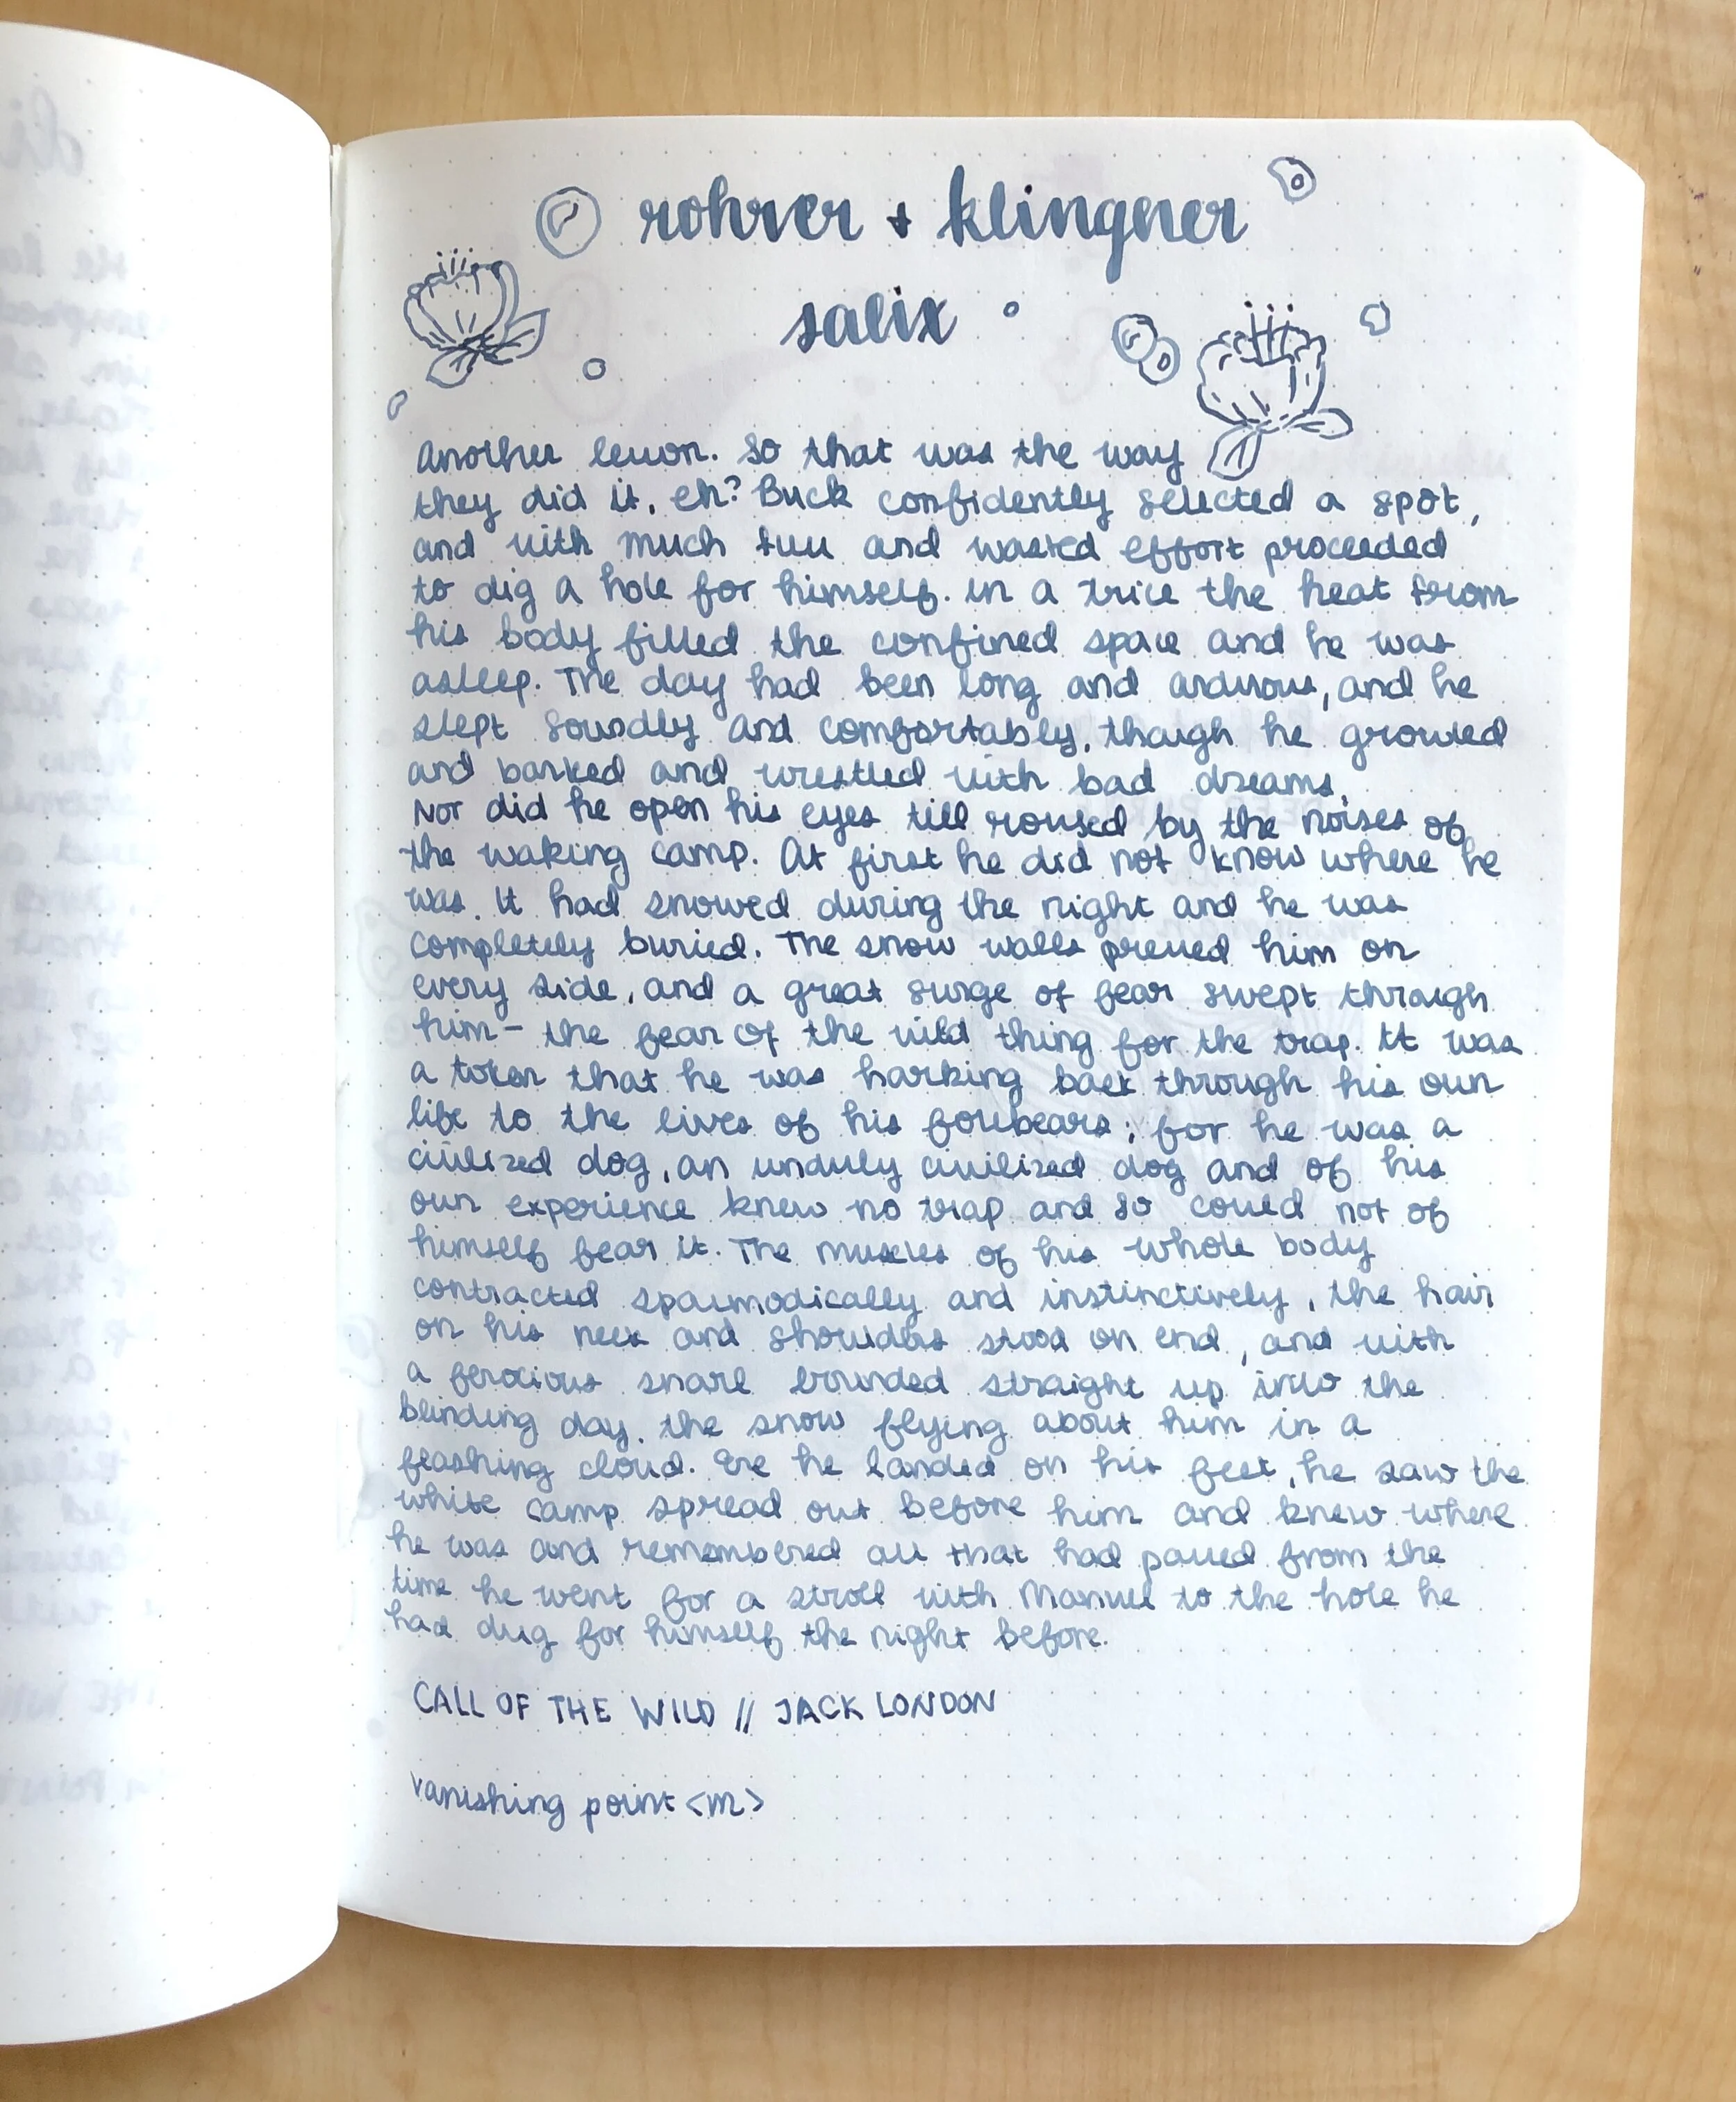 rohrer + klingner
salix
Another lesson. So that was the way
they did it, eh? Buck confidently selected a spot,
and with much fuss and wasted effort proceeded
to dig a hole for himself. in a trice the heat from
his body filled the confined space and he was
asleep. The day had been long and arduous, and he
slept soundly and comfortably, though he growled
and barked and wrestled with bad dreams.
Nor did he open his eyes till roused by the noises of
the waking camp. At first he did not know where he
was. It had snowed during the night and he was
completely buried. The snow walls pressed him on
every side, and a great surge of fear swept through
him - the fear of the wild thing for the trap. It was
a token that he was harking back through his own
life to the lives of his forebears; for he was a
civilized dog, an unduly civilized dog and of his
own experience knew no trap and so could not of
himself fear it. The muscles of his whole body
contracted spasmodically and instinctively, the hair
on his neck and shoulders stood on end, and with
a ferocious snarl bounded straight up into the
blinding day. the snow flying about him in a
flashing cloud. Ere he landed on his feet, he saw the
white camp spread out before him and knew where
he was and remembered all that had passed from the
time he went for a stroll with Manuel to the hole he
had dug for himself the night before.
CALL OF THE WILD // JACK LONDON
vanishing point <m>